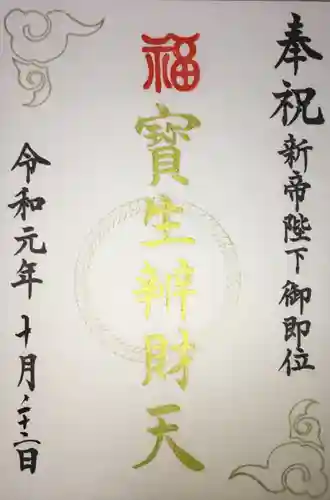 奉祝 新帝陛下御即位
福
寳生辨財天
令和元年 十月二十二日